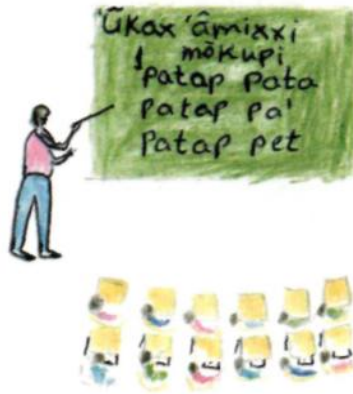 'ũkax 'ãmixxi
mõkupi
patap pata
patap pa'
patap pet